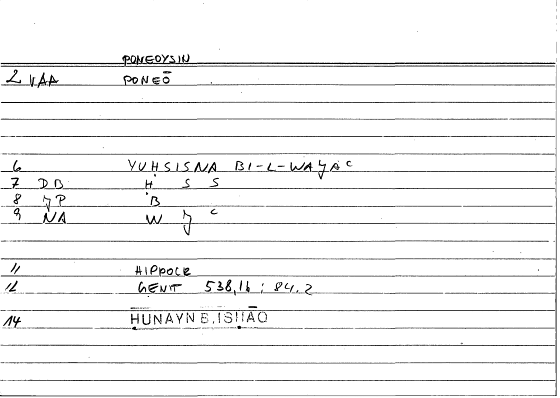 PONEOYSIN
2 VAA PONEŌ
6 YUḤSISNA BI-L-WAǦAC
7 DB Ḥ S S
8 JP B
9 NA W Ǧ C
11 HIPPOCR
12 GENIT 538,16 : 84.2
14 ḤUNAYN B. ISḤĀQ